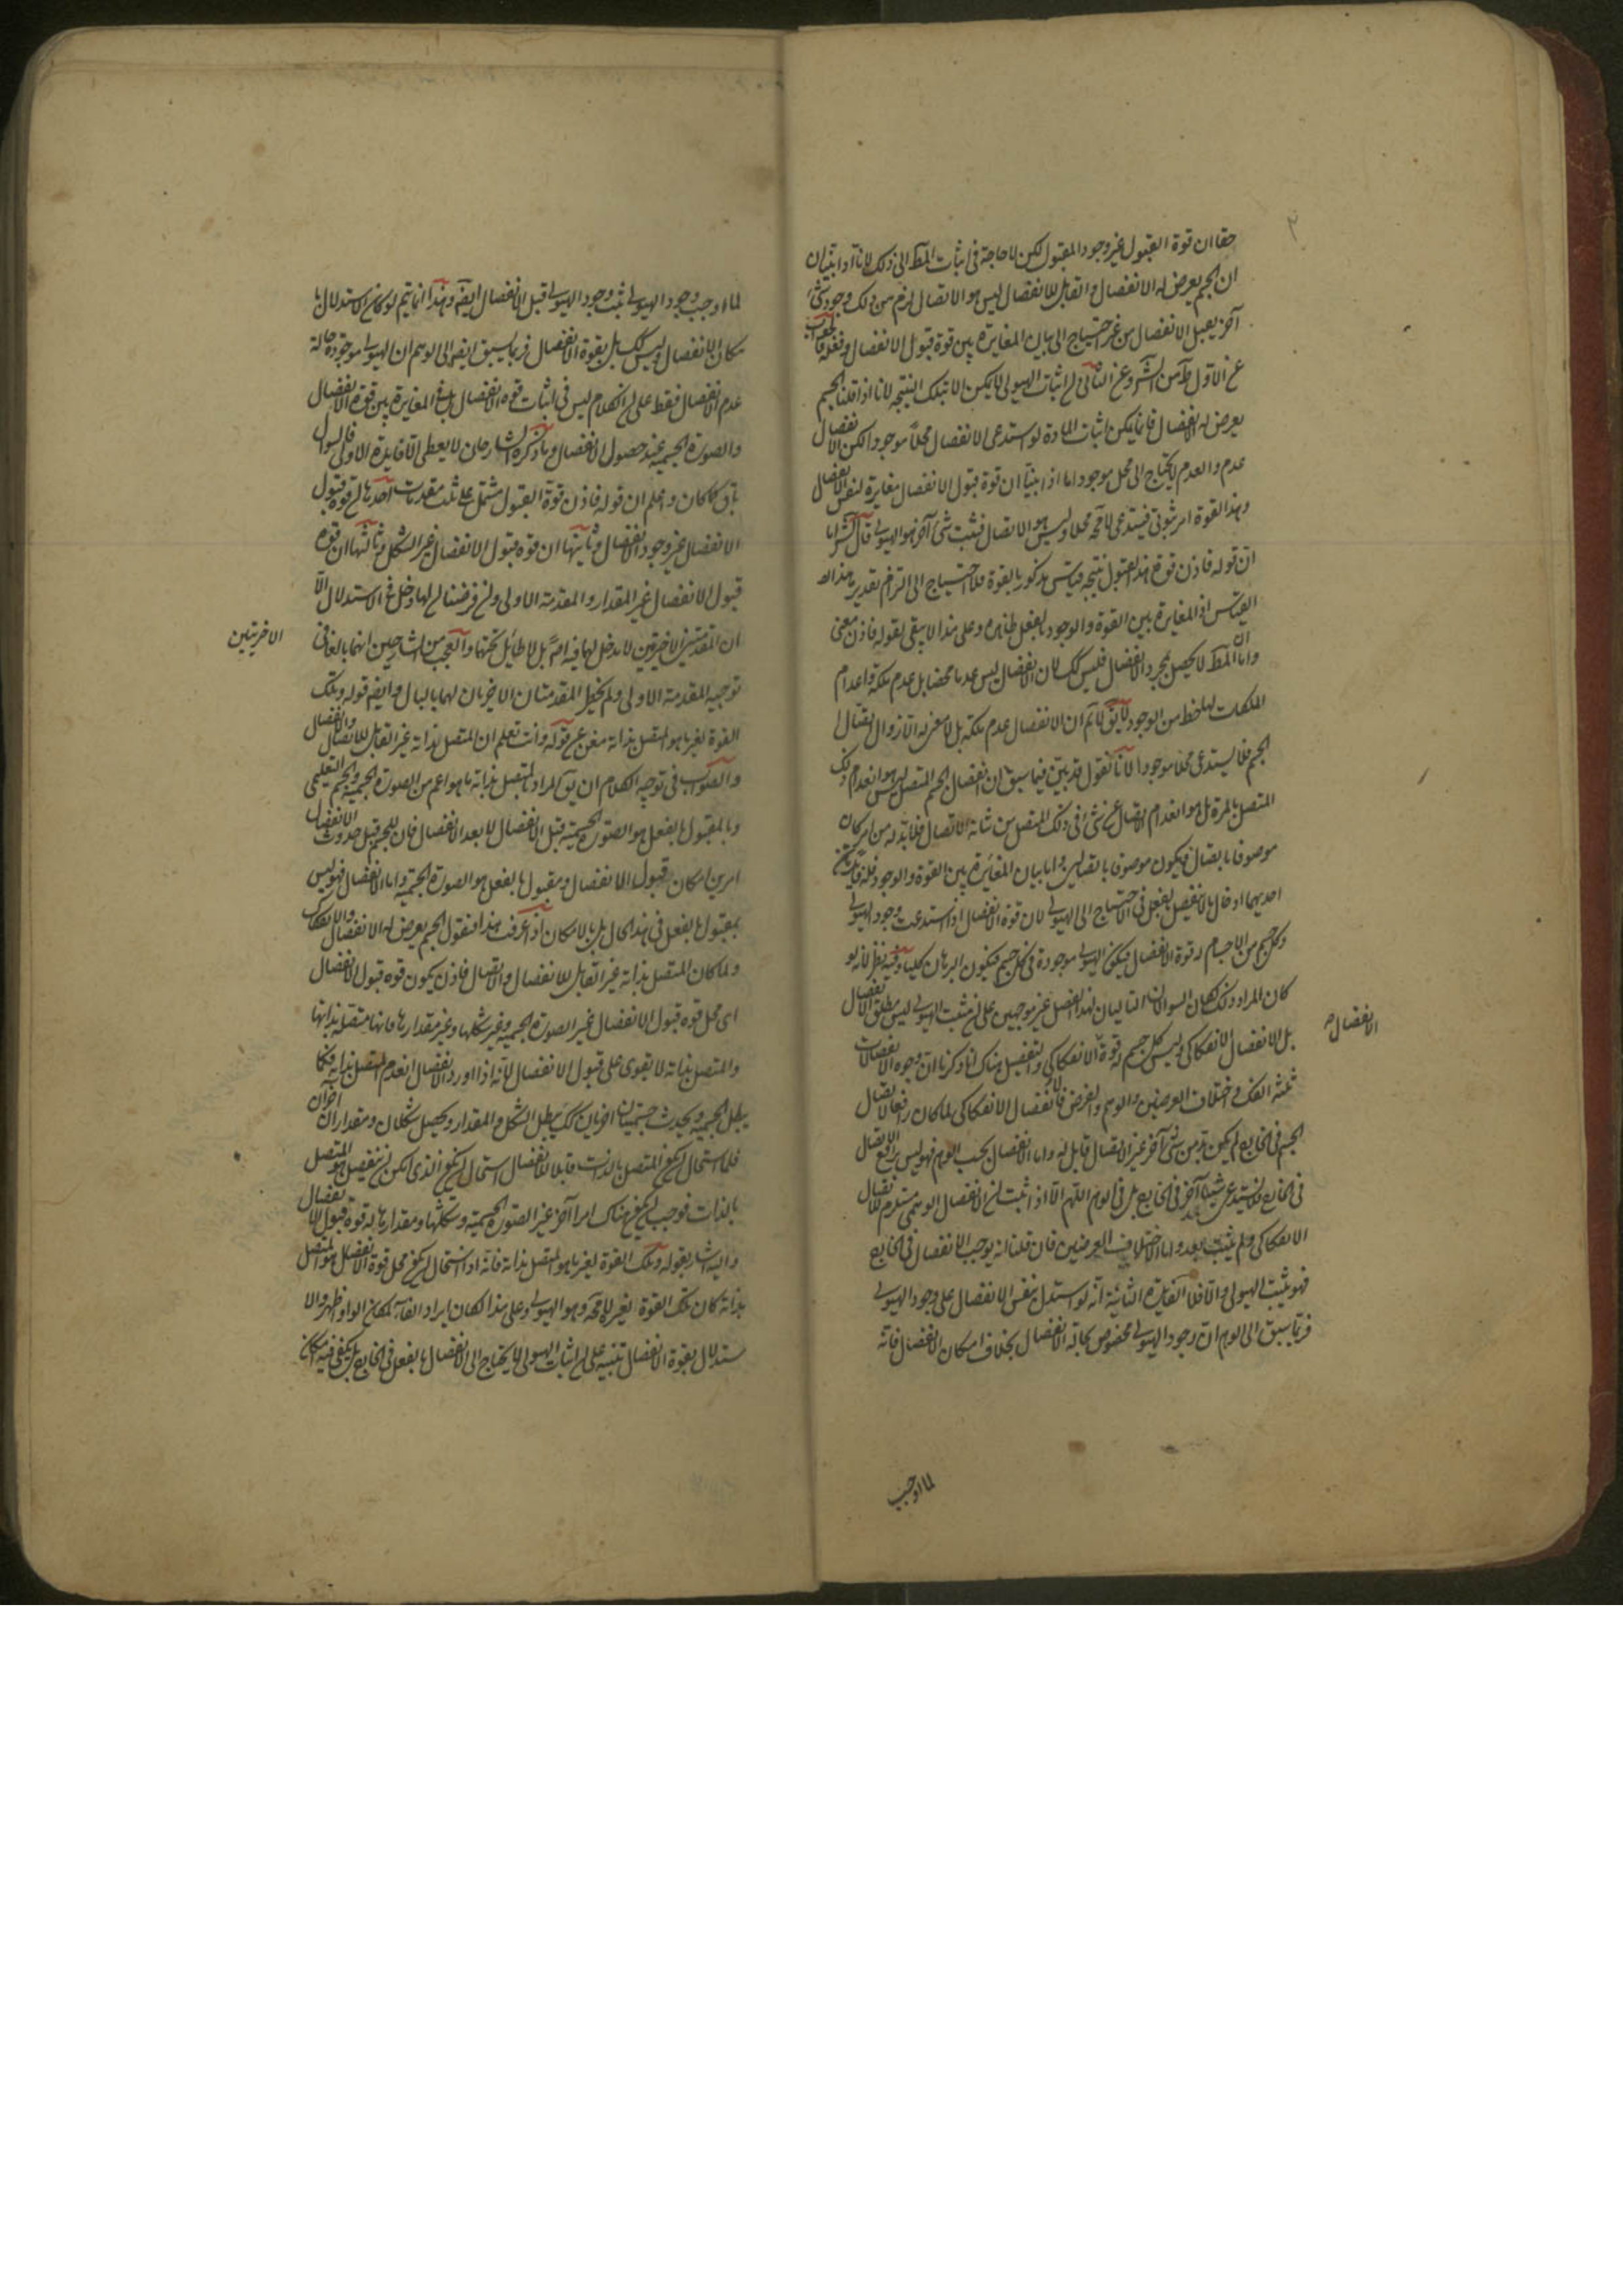 حقا ان قوة القبول غير وجود المقبول لكن لا حاجة فى اثبات المط الى ذلك لانا اذا بينا ان
ان الجسم يعرض له الانفصال والقابل للانفصال ليس هو الاتصال لزم من ذلك وجود شئ
آخر يقبل الانفصال من غير احتياج الى بيان المغايرة بين قوة قبول الانفصال وفعله فالجواب
عن الاول من الشرح وعن الثانى اثبات الهيولى لا يمكن الا بتلك النتيجه لانا اذا قلنا الجسم
يعرض له الانفصال فانما يمكن اثبات المادة لو استدعى الانفصال محلا موجودا لكن الانفصال
عدم والعدم لا يحتاج الى محل موجود اما اذا بينا ان قوة قبول الانفصال مغايرة لنفس الانفصال
وهذا القوة امر ثبوتى فيستدعى لامحة محلا وليس هو الاتصال فثبت شئ آخر هو الهيولى قال الش اما
ان قوله فاذن قوة هذا القبول نتيجه قياس مذكور بالقوة فلا احتياج الى التزام تقدير هذا
القياس اذ المغايرة بين القوة والوجود بالفعل ظاهره وعلى هذا لا يبقى لقوله فاذن معنى
واما ان المط لا يحصل بمجرد الانفصال فليس كك لان الانفصال ليس عدما محضا بل عدم ملكة واعدام
الملكات لها حظ من الوجود لا يق لا نم ان الانفصال عدم ملكة بل لا معنى له الا زوال اتصال
الجسم فلا يستدعى محلا موجودا لانا نقول قد تبين فيما سبق ان انفصال الجسم المتصل ليس هو انعدام ذلك
المتصل بالمرة بل هو انعدام اتصال عن شئ فى ذلك المتصل من شانه الاتصال فلا بد له من امر كان
موصوفا باتصال فيكون موصوفا باتصالين واما بيان المغايرة بين القوة والوجود فله فائدتان
احديهما ادخال ما لا ينفصل بالفعل فى الاحتياج الى الهيولى لان قوة الانفصال اذا استدعت وجود الهيولى
وكل جسم من الاجسام له قوة الانفصال فيكون الهيولى موجودة فى كل جسم فيكون البرهان كليا وفيه نظر لانه لو
كان المراد ذلك لكان السوالان التاليان لهذا الفصل غير موجهين على ان مثبت الهيولى ليس مطلق الانفصال
بل الانفصال الانفكاكى وليس كل جسم له قوة الانفكاكى والتفصيل هناك انا ذكرنا ان وجوه الانفصالات
ثلثه الفك واختلاف العرضين والوهم والفرض فالانفصال الانفكاكى لما كان رافعا لاتصال
الجسم فى الخارج لم يكن بد من شئ آخر غير الاتصال قابل له واما الانفصال بحسب الوهم فهو ليس برافع الاتصال
فى الخارج فلا يستدعى شيئا آخر فى الخارج بل فى الوهم اللهم الا اذا ثبت ان الانفصال الوهمى مستلزم للانفصال
الانفكاكى ولم يثبت بعد واما الاختلاف العرضين فان قلنا انه يوجب الانفصال فى الخارج
فهو يثبت الهيولى والا فلا الفايدة الثانية انه لو استدل بنفس الانفصال على وجود الهيولى
فربما سبق الى الوهم ان وجود الهيولى مخصوص بحالة الانفصال بخلاف امكان الانفصال فانه
الانفصال
لما اوجب
لما اوجب وجود الهيولى ثبت وجود الهيولى قبل الانفصال ايضه وهذا انما يتم لو كان الاستدلال با
مكان الانفصال وليس كك بل بقوة الانفصال فربما سبق ايضه الى الوهم ان الهيولى موجودة حالة
عدم الانفصال فقط على ان الكلام ليس فى اثبات قوه الانفصال بل فى المغايرة بين قوة الانفصال
والصورة الجسميه عند حصول الانفصال وما ذكره الشارحان لا يعطى الا فايدة الاولى فالسوال
باق كما كان واعلم ان قوله فاذن قوة القبول مشتمل على ثلث مقدمات احديها ان قوة قبول
الانفصال غير وجود الانفصال وثانيتها ان قوه قبول الانفصال غير الشكل وثالثها ان قوه
قبول الانفصال غير المقدار والمقدمة الاولى وان فرضنا ان لها دخل فى الاستدلال الا
ان المقدمتين الاخيرتين لا مدخل لهما فيه اصلا بل لا طائل تحتهما والعجب من الشارحين انهما بالغا فى
توجيه المقدمة الاولى ولم يخطر المقدمتان الاخريان لهما بالبال وايضه قوله وتلك
القوة لغير ما هو المتصل بذاته مغن عن قوله وانت تعلم ان المتصل بذاته غير القابل للاتصال والانفصال
والصواب فى توجيه الكلام ان يق المراد بالمتصل بذاته ما هو اعم من الصورة الجسميه والجسم التعليمى
وبالمقبول بالفعل هو الصورة الجسمية قبل الانفصال لا بعد الانفصال فان للجسم قبل حدوث الانفصال
امرين امكان قبول الانفصال ومقبول بالفعل هو الصورة الجسمية واما الانفصال فهو ليس
بمقبول بالفعل فى هذه الحال بل بالامكان اذا عرفت هذا فنقول الجسم يعرض له الانفصال والانفكاك
ولما كان المتصل بذاته غير القابل للانفصال والاتصال فاذن يكون قوه قبول الانفصال
اى محل قوه قبول الانفصال غير الصورة الجسميه وغير شكلها وغير مقدارها فانها متصله بذاتها
والمتصل بذاته لا يقوى على قبول الانفصال لانه اذا ورد الانفصال انعدم المتصل بذاته فكما
يبطل الجسميه ويحدث جسميتان اخريان كك يبطل الشكل والمقدار ويحصل شكلان ومقداران آخران
فلما استحال ان يكون المتصل بالذات قابلا للانفصال استحال ان يكون الذى يمكن ان ينفصل هو المتصل
بالذات فوجب ان يكون هناك امرا آخر غير الصورة الجسمية وشكلها ومقدارها له قوة قبول الانفصال
واليه اشار بقوله وتلك القوة لغير ما هو المتصل بذاته فانه اذا استحال ان يكون محل قوة الانفصال هو المتصل
بذاته كان تلك القوة لغيره لامحة وهو الهيولى وعلى هذا لكان ايراد الفاء مكان الواو اظهر والا
ستدلال بقوة الانفصال تنبيه على ان اثبات الهيولى لا يحتاج الى الانفصال بالفعل فى الخارج بل يكفى فيه امكان
الاخريتين